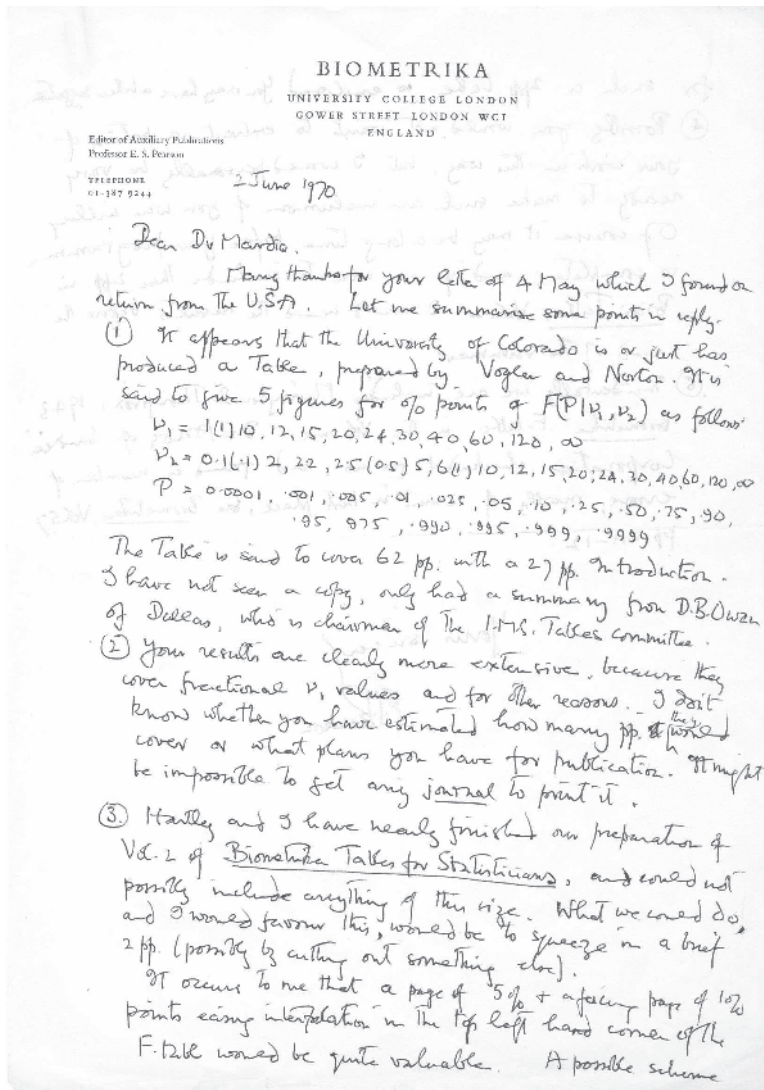 BIOMETRIKA
UNIVERSITY COLLEGE LONDON
GOWER STREET LONDON WC1
ENGLAND
Editor of Auxiliary Publications
Professor E. S. Pearson
TELEPHONE
01-387 9244
2 June 1970
Dear Dr Mardia.
Many thanks for your letter of 4 May which I found on
return from the U.S.A. Let me summarise some points in reply.
(1) It appears that the University of Colorado is or just has
produced a Table, prepared by Vogler and Norton. It is
said to give 5 figures for % points of F(P|ν1,ν2) as follows
ν1 = 1(1)10, 12, 15, 20, 24, 30, 40, 60, 120, ∞
ν2 = 0.1(.1) 2, 2.2, 2.5(0.5) 5, 6(1) 10, 12, 15, 20, 24, 30, 40, 60, 120, ∞
P = 0.0001, .001, .005, .01, .025, .05, .10, .25, .50, .75, .90,
.95, 975, .990, .995, .999, .9999
The Table is said to cover 62 pp. with a 27 pp. Introduction.
I have not seen a copy, only had a summary from D.B. Owen
of Dallas, who is chairman of the I.M.S. Tables committee.
(2) Your results are clearly more extensive, because they
cover fractional ν1 values and for other reasons. I don't
know whether you have estimated how many pp. they would
cover or what plans you have for publication. It might
be impossible to get any journal to print it.
(3.) Hartley and I have nearly finished our preparation of
Vol. 2 of Biometrika Tables for Statisticians, and could not
possibly include anything of this size. What we could do,
and I would favour this, would be to squeeze in a brief
2 pp. (possibly by cutting out something else).
It occurs to me that a page of 5% + a facing page of 10%
points easing interpolation in the top left hand corner of the
F-table would be quite valuable. A possible scheme